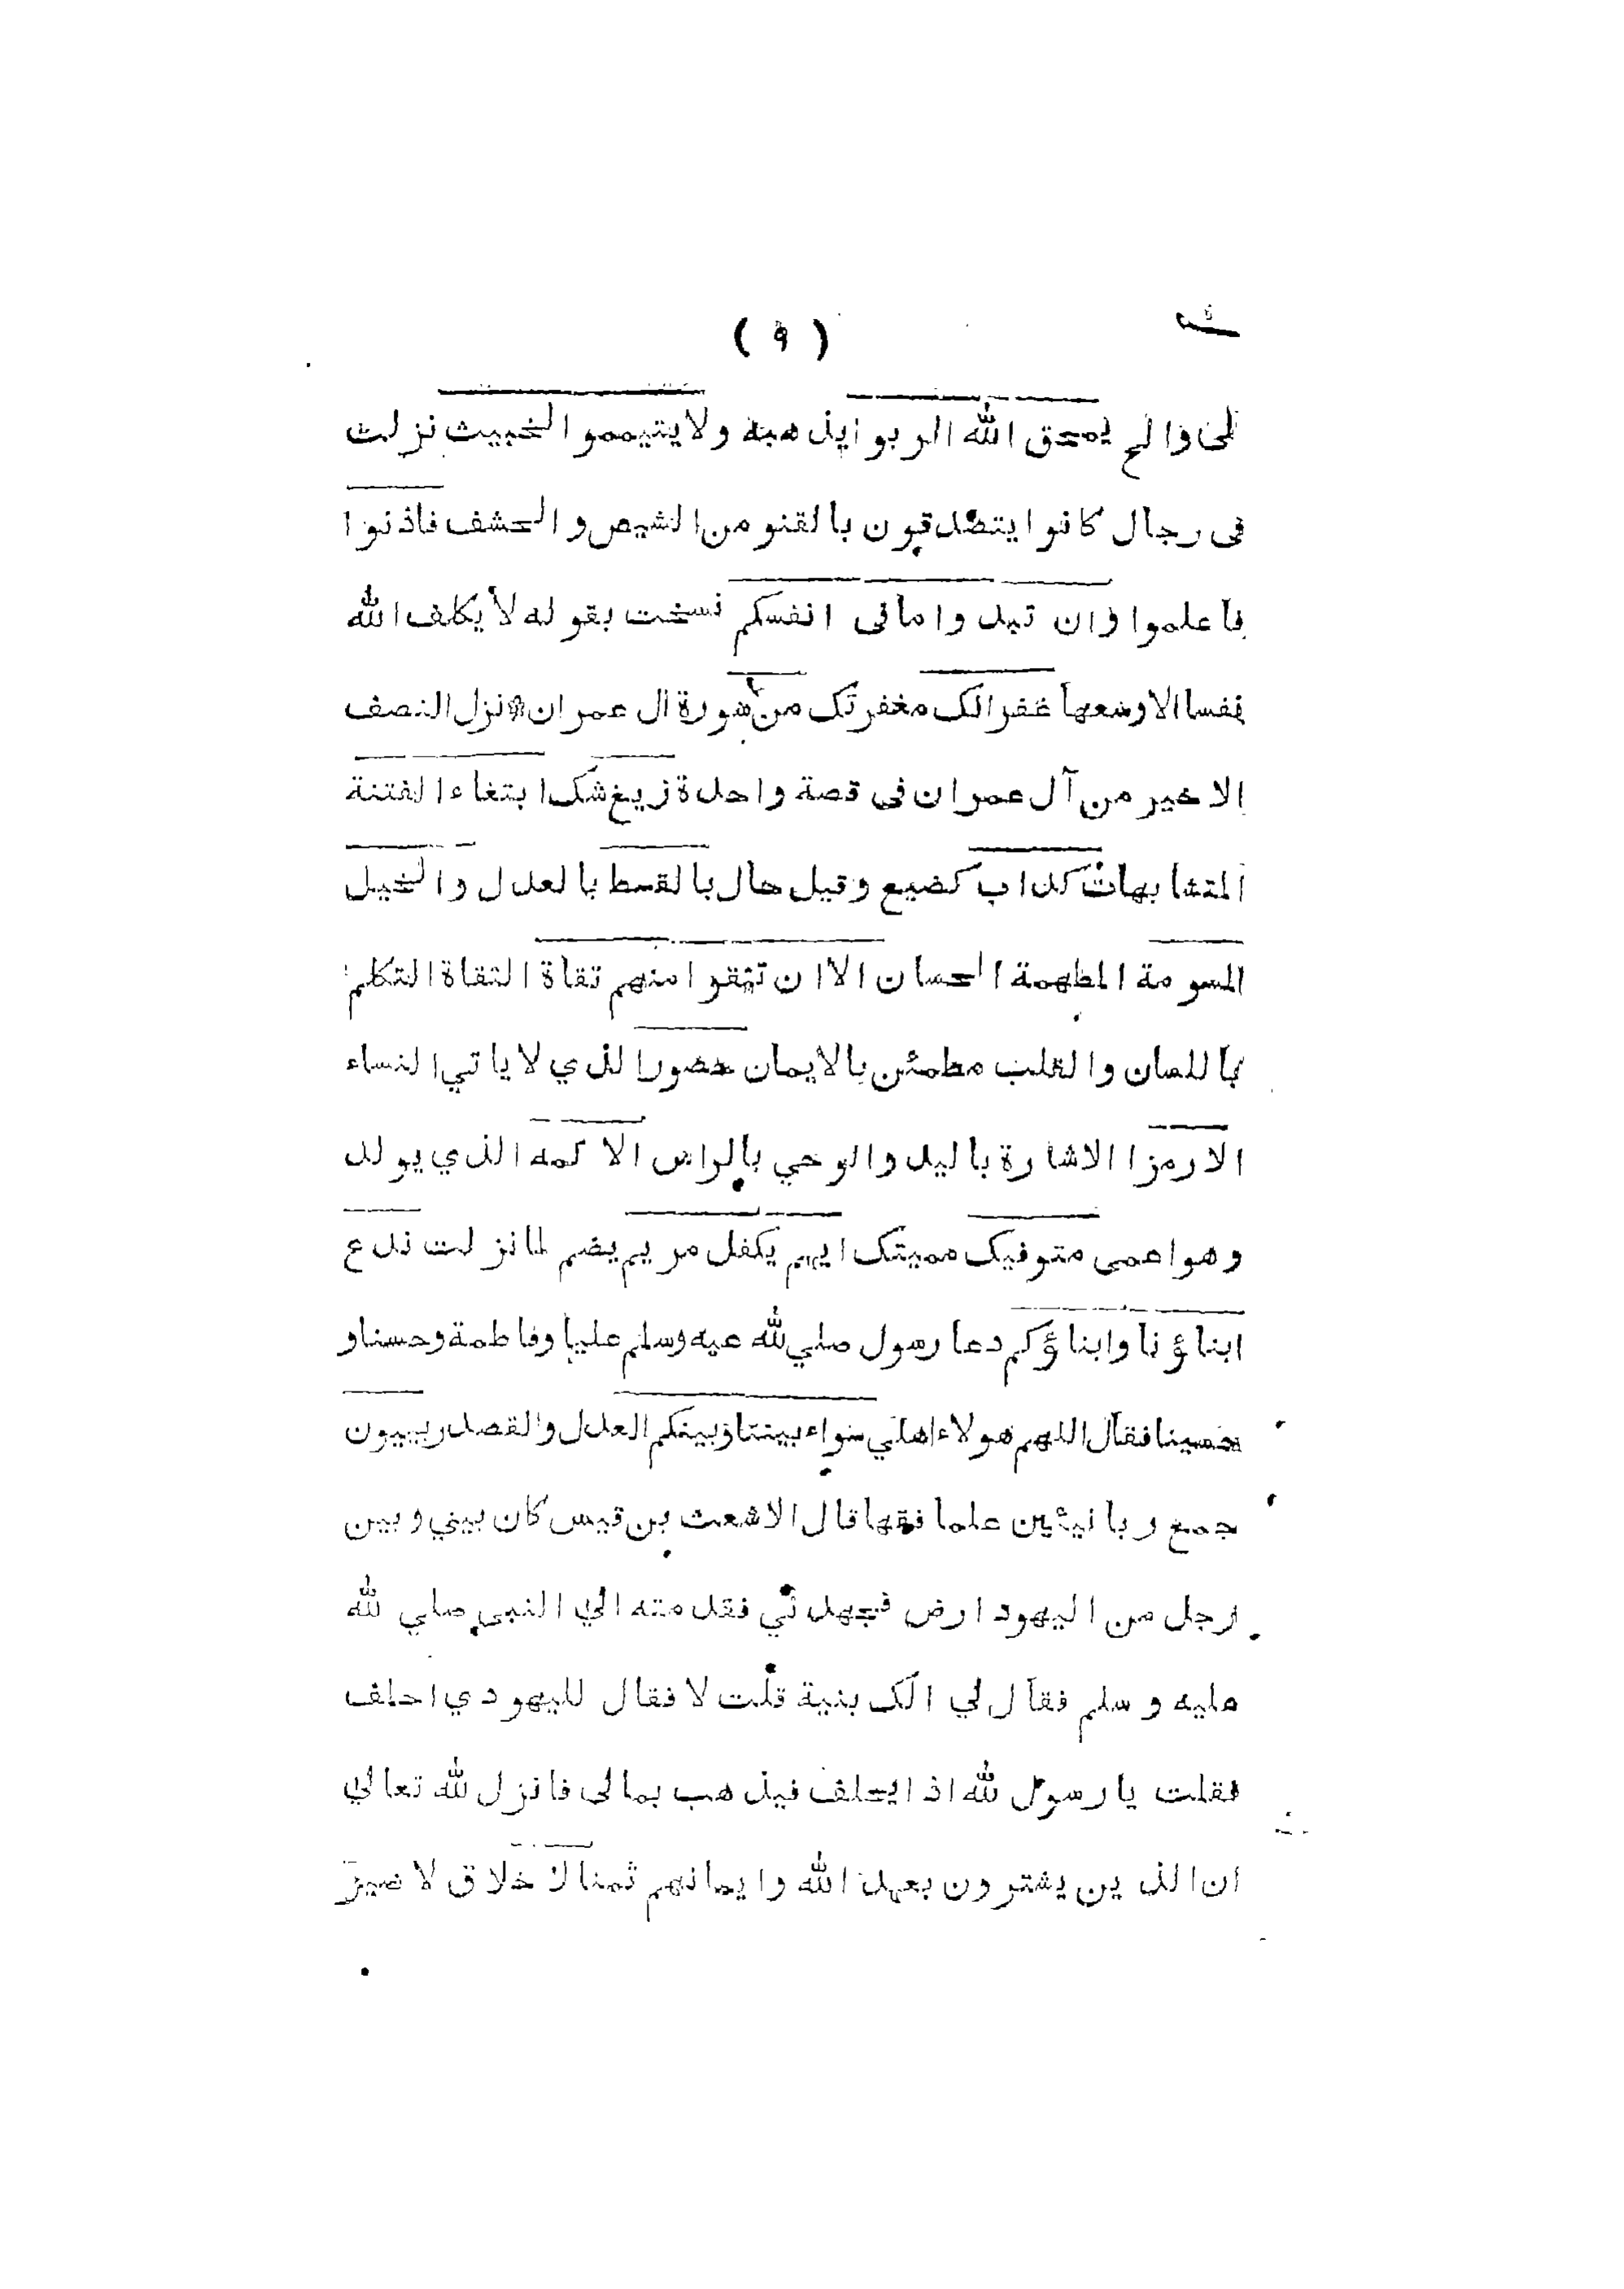 ( ٩ )
لى والح يمحق الله الربوا يذهبه ولا يتيمموا الخبيث نزلت
فى رجال كانوا يتصدقون بالقنو من الشيص والحشف فاذنوا
فاعلموا وان تبدوا مافى انفسكم نسخت بقوله لا يكلف الله
نفسا الا وسعها غفرانك مغفرتك من سورة ال عمران نزل النصف
الاخير من آل عمران فى قصة واحدة زيغ شك ابتغاء الفتنة
المتشابهات كداب كضيع وقيل حال بالقسط بالعدل والخيل
المسومة المطهمة الحسان الا ان تتقوا منهم تقاة التقاة التكلم
باللسان والقلب مطمئن بالايمان حصورا الذي لا ياتي النساء
الا رمزا الاشارة باليد والوحي بالراس الاكمه الذي يولد
وهو اعمى متوفيك مميتك ايهم يكفل مريم يضم لما نزلت ندع
ابناؤنا وابناؤكم دعا رسول صلي لله عيه وسلم عليا وفاطمة وحسنا و
حسينا فقال اللهم هولاء اهلي سواء بيننا وبينكم العدل والقصد ربيون
جمع ربانيئين علما فقها قال الاشعث بن قيس كان بيني وبين
رجل من اليهود ارض فجهدني فقدمته الي النبى صلي لله
عليه وسلم فقال لي الك بنية قلت لا فقال لليهودي احلف
فقلت يا رسول لله اذا يحلف فيذهب بمالى فانزل لله تعالي
ان الذين يشترون بعهد الله وايمانهم ثمنا لا خلاق لا خير